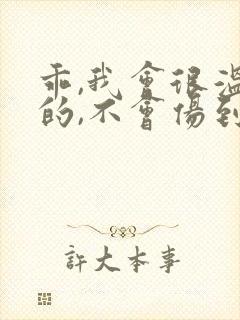 乖,我會很溫
的,不會傷到
許大本事